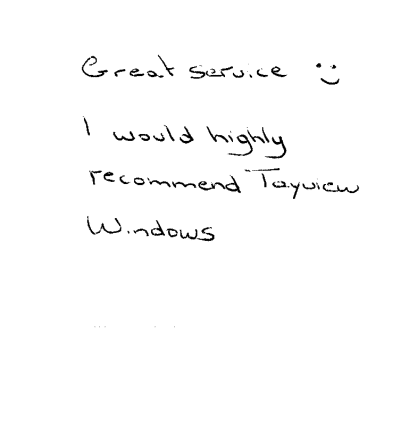 Great service :)
I would highly
recommend Tayview
Windows